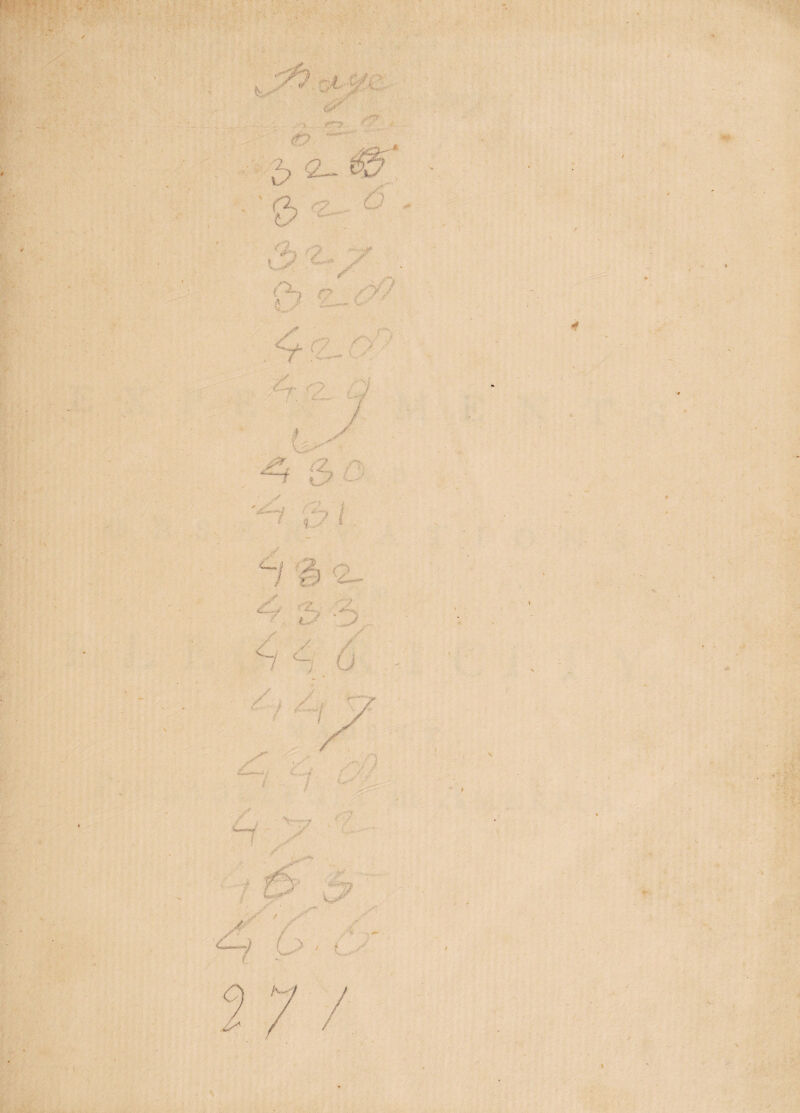 Page
322
325
326
327
328
428
429
430
431
432
433
446
447
448
472
465
466
271